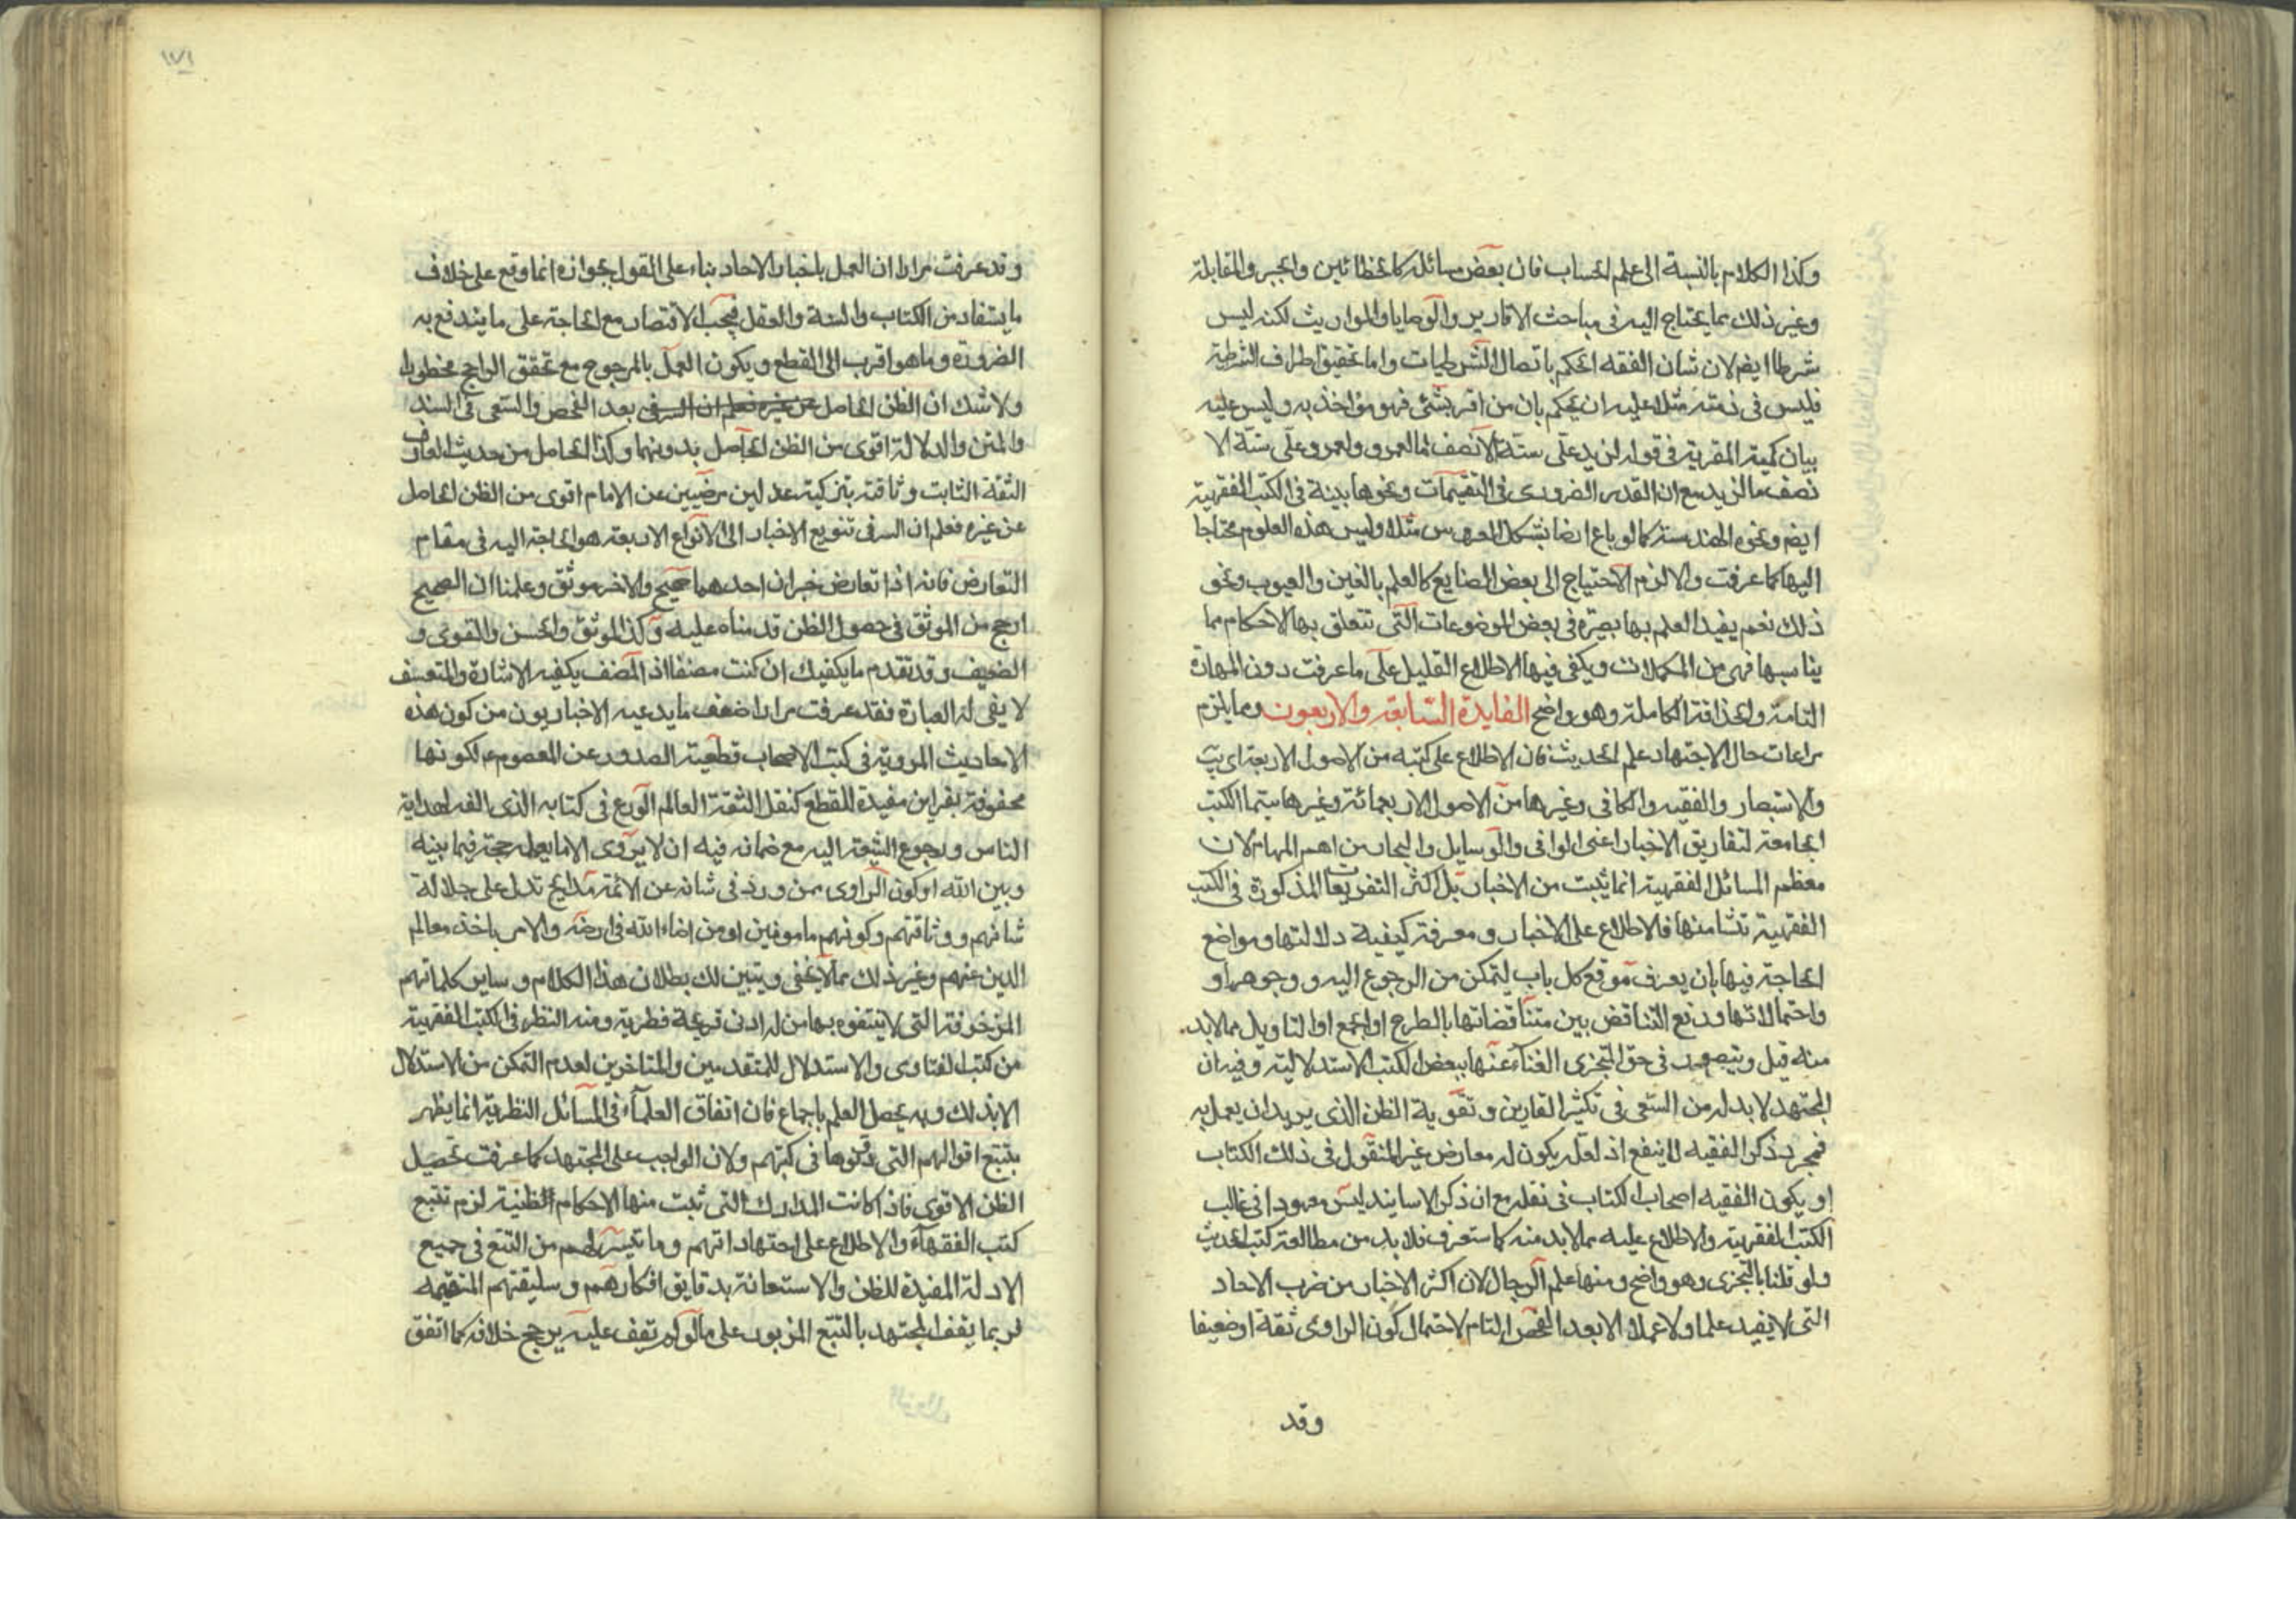 وكذا الكلام بالنسبة الى علم الحساب فان بعض مسائله كالخطائين والجبر والمقابلة
وغير ذلك مما يحتاج اليه فى مباحث الاقارير والوصايا والمواريث لكنه ليس
شرطا ايضم لان شان الفقه الحكم باتصال الشرطيات واما تحقيق اطراف الشرطية
فليس فى ذمته مثلا عليه ان يحكم بان من اقر بشئ فهو مؤاخذ به وليس عليه
بيان كمية المقر به فى قوله لزيد على ستة الا نصف مالعمرو ولعمرو على ستة الا
نصف مالزيد مع ان القدر الضرورى فى التقسيمات ونحوها بينة فى الكتب الفقهية
ايضم ونحوه الهندسة كما لو باع ارضا بشكل العروس مثلا وليس هذه العلوم محتاجا
اليها كما عرفت والا لزم الاحتياج الى بعض الصنايع كالعلم بالغبن والعيوب ونحو
ذلك نعم يفيد العلم بها بصيرة فى بعض الموضوعات التى تتعلق بها الاحكام مما
يناسبها فهى من المكملات ويكفى فيها الاطلاع القليل على ما عرفت دون المهارة
التامة والحذاقة الكاملة وهو واضح الفايدة السابعة والاربعون ومما يلزم
مراعات حال الاجتهاد علم الحديث فان الاطلاع على كتبه من الاصول الاربعة اى يب
والاستبصار والفقيه والكافى وغيرها من الاصول الاربعمائة وغيرها سيما الكتب
الجامعة لتفاريق الاخبار اعنى الوافى والوسايل والبحار من اهم المهام لان
معظم المسائل الفقهية انما يثبت من الاخبار بل اكثر التفريعات المذكورة فى الكتب
الفقهية تنشا منها فالاطلاع على الاخبار ومعرفة كيفية دلالتها ومواضع
الحاجة فيها بان يعرف موقع كل باب ليتمكن من الرجوع اليه و وجوهها و
واحتمالاتها ودفع التناقض بين متناقضاتها بالطرح او الجمع او التاويل مما لا بد
منه قيل ويتصور فى حق المتجزى الغناء عنها ببعض الكتب الاستدلالية وفيه ان
المجتهد لا بد له من السعى فى تكثير القارين وتقوية الظن الذى يريد ان يعمل به
فمجرد ذكر الفقيه لا ينفع اذ لعله يكون له معارض غير المنقول فى ذلك الكتاب
او يكون الفقيه اصحاب الكتاب فى نقله مع ان ذكر الاسانيد ليس معهودا فى غالب
الكتب الفقهية والاطلاع عليه مما لا بد منه كما ستعرف فلا بد من مطالعة كتب الحديث
ولو قلنا بالتجزى وهو واضح ومنها علم الرجال لان اكثر الاخبار من ضرب الاحاد
التى لا يفيد علما ولا عملا الا بعد الفحص التام لاحتمال كون الراوى ثقة او ضعيفا
وقد
١٧١
وقد عرفت مرارا ان العمل باخبار الاحاد بناء على القول بجوازه انما وقع على خلاف
ما يستفاد من الكتاب والسنة والعقل فيجب الاقتصار مع الحاجة على ما يندفع به
الضرورة وما هو اقرب الى القطع ويكون العمل بالمرجوح مع تحقق الراجح محظورا
ولا شك ان الظن الحاصل عن غيره فعلم ان السر فى بعد الفحص والسعى فى السند
والمتن والدلالة اقوى من الظن الحاصل بدونهما وكذا الحاصل من حديث العارف
الثقة الثابت وثاقته بتزكية عدلين مرضيين عن الامام اقوى من الظن الحاصل
عن غيره فعلم ان السر فى تنويع الاخبار الى الانواع الاربعة هو الحاجة اليه فى مقام
التعارض فانه اذا تعارض خبران احدهما صحيح والاخر موثق وعلمنا ان الصحيح
ارجح من الموثق فى حصول الظن قدمناه عليه وكذا الموثق والحسن والقوى و
الضعيف وقد تقدم ما يكفيك ان كنت منصفا اذ المنصف يكفيه الاشارة والمتعسف
لا يفى له العبارة فقد عرفت مرارا ضعف ما يدعيه الاخباريون من كون هذه
الاحاديث المروية فى كتب الاصحاب قطعية الصدور عن المعصوم ع لكونها
محفوفة بقراين مفيدة للقطع كنقل الثقة العالم الورع فى كتابه الذى الفه لهداية
الناس ورجوع الشيعة اليه مع ضمانه فيه ان لا يروى الا ما يعلمه حجة فيما بينه
وبين الله او كون الراوى ممن ورد فى شانه عن الائمة مدايح تدل على جلالة
شانهم ووثاقتهم وكونهم مامونين او من امناء الله فى ارضه والامر باخذ معالم
الدين عنهم وغير ذلك مما لا يخفى ويتبين لك بطلان هذا الكلام وساير كلماتهم
المزخرفة التى لا يتفوه بها من له ادنى قريحة فطرية ومنه النظر فى الكتب الفقهية
من كتب الفتاوى والاستدلال للمتقدمين والمتاخرين لعدم التمكن من الاستدلال
الا بذلك وبه يحصل العلم باجماع فان اتفاق العلماء فى المسائل النظرية انما يظهر
بتتبع اقوالهم التى دونوها فى كتبهم ولان الواجب على المجتهد كما عرفت تحصيل
الظن الاقوى فاذا كانت المدارك التى تثبت منها الاحكام الظنية لزم تتبع
كتب الفقهاء والاطلاع على اجتهاداتهم وما تيسر لهم من التتبع فى جميع
الادلة المفيدة للظن والاستعانة بدقايق افكارهم وسليقتهم المستقيمة
لربما يقف المجتهد بالتتبع المزبور على ما لو لم يقف عليه يرجح خلافه كما اتفق